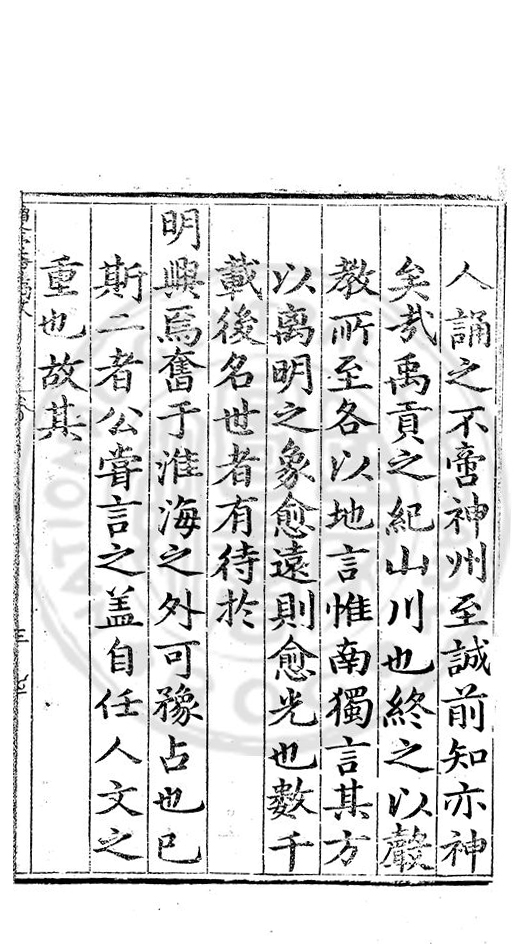 人誦之不啻神州至誠前知亦神
矣㢤禹貢之紀山川也終之以聲
教所至各以地言惟南獨言其方
以离明之象愈遠則愈光也數千
載後名世者有待於
明興焉奮于淮海之外可豫占也已
斯二者公嘗言之盖自任人文之
重也故其